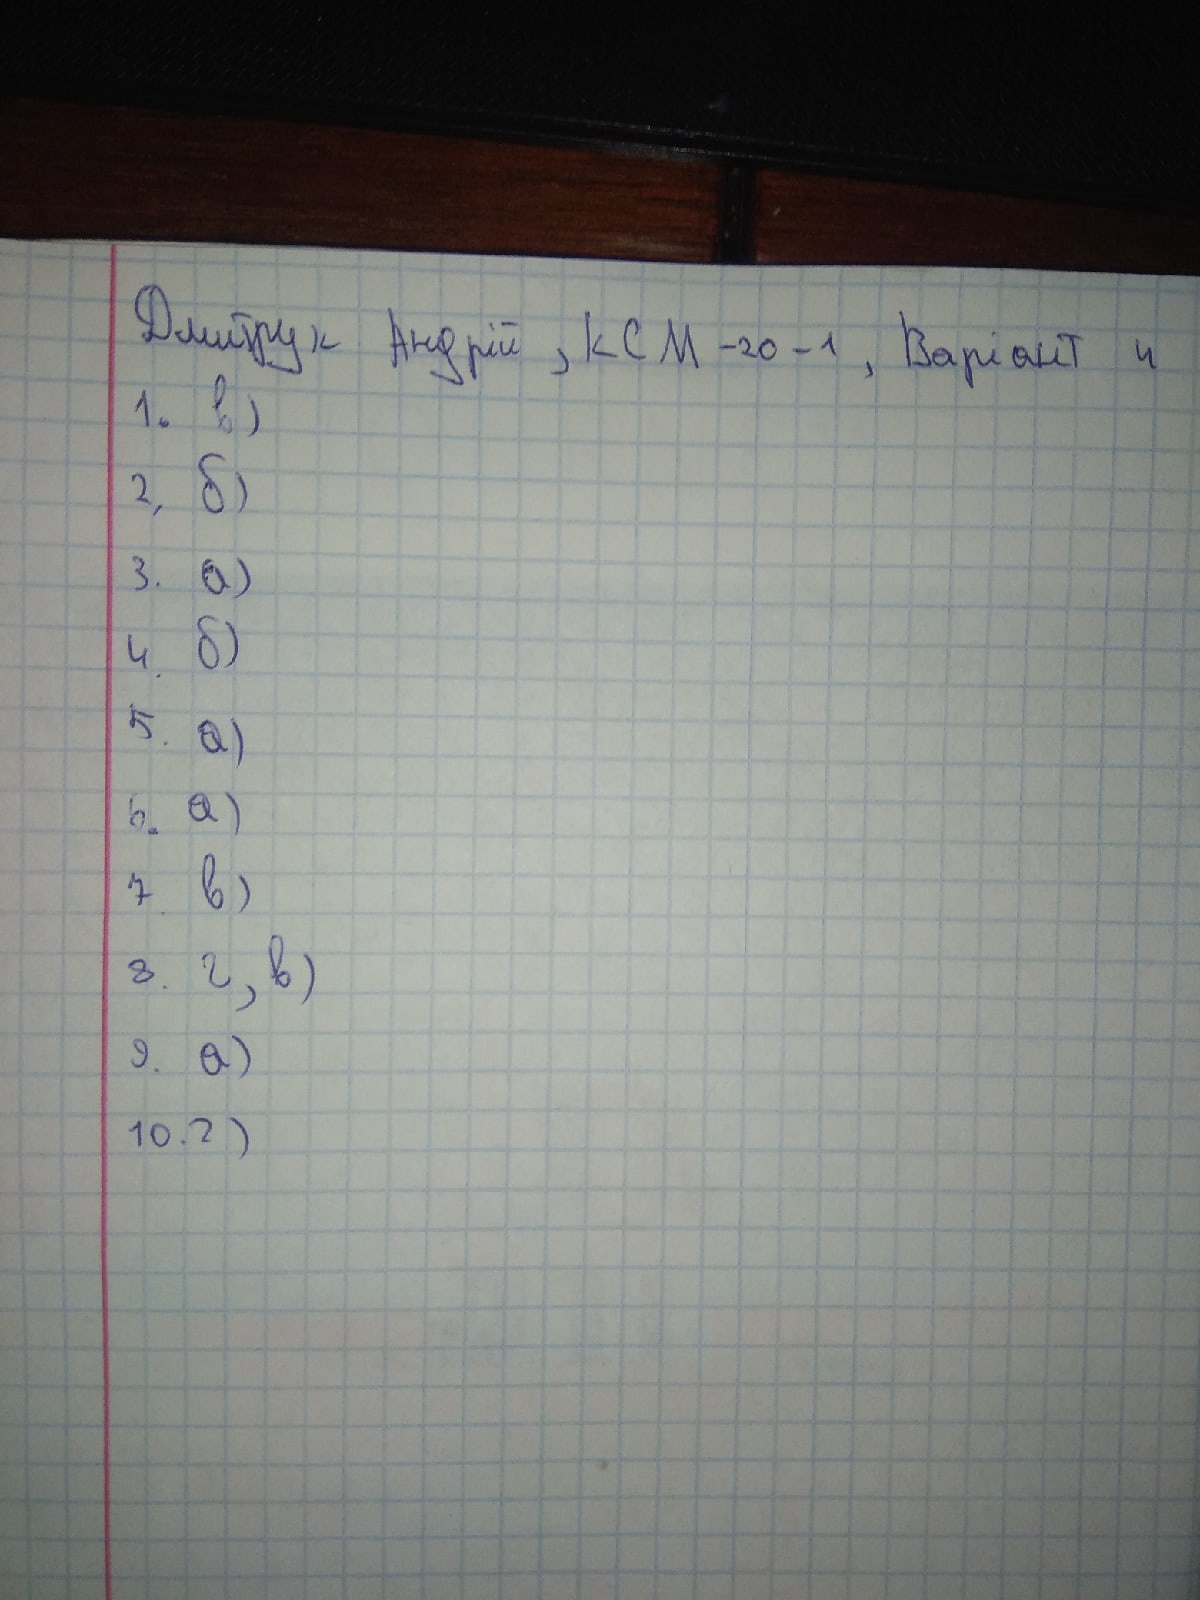 Дмитрук Андрій, КСМ-20-1, Варіант 4
1. в)
2, б)
3. а)
4. б)
5. а)
6. а)
7. в)
8. г, в)
9. а)
10. г)